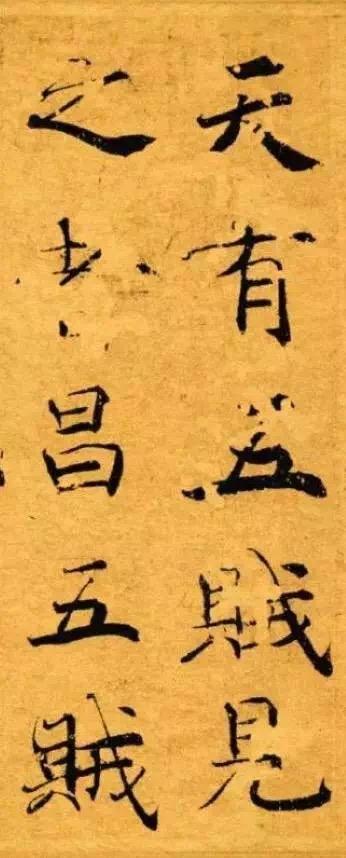 天有五賊見
之者昌五賊